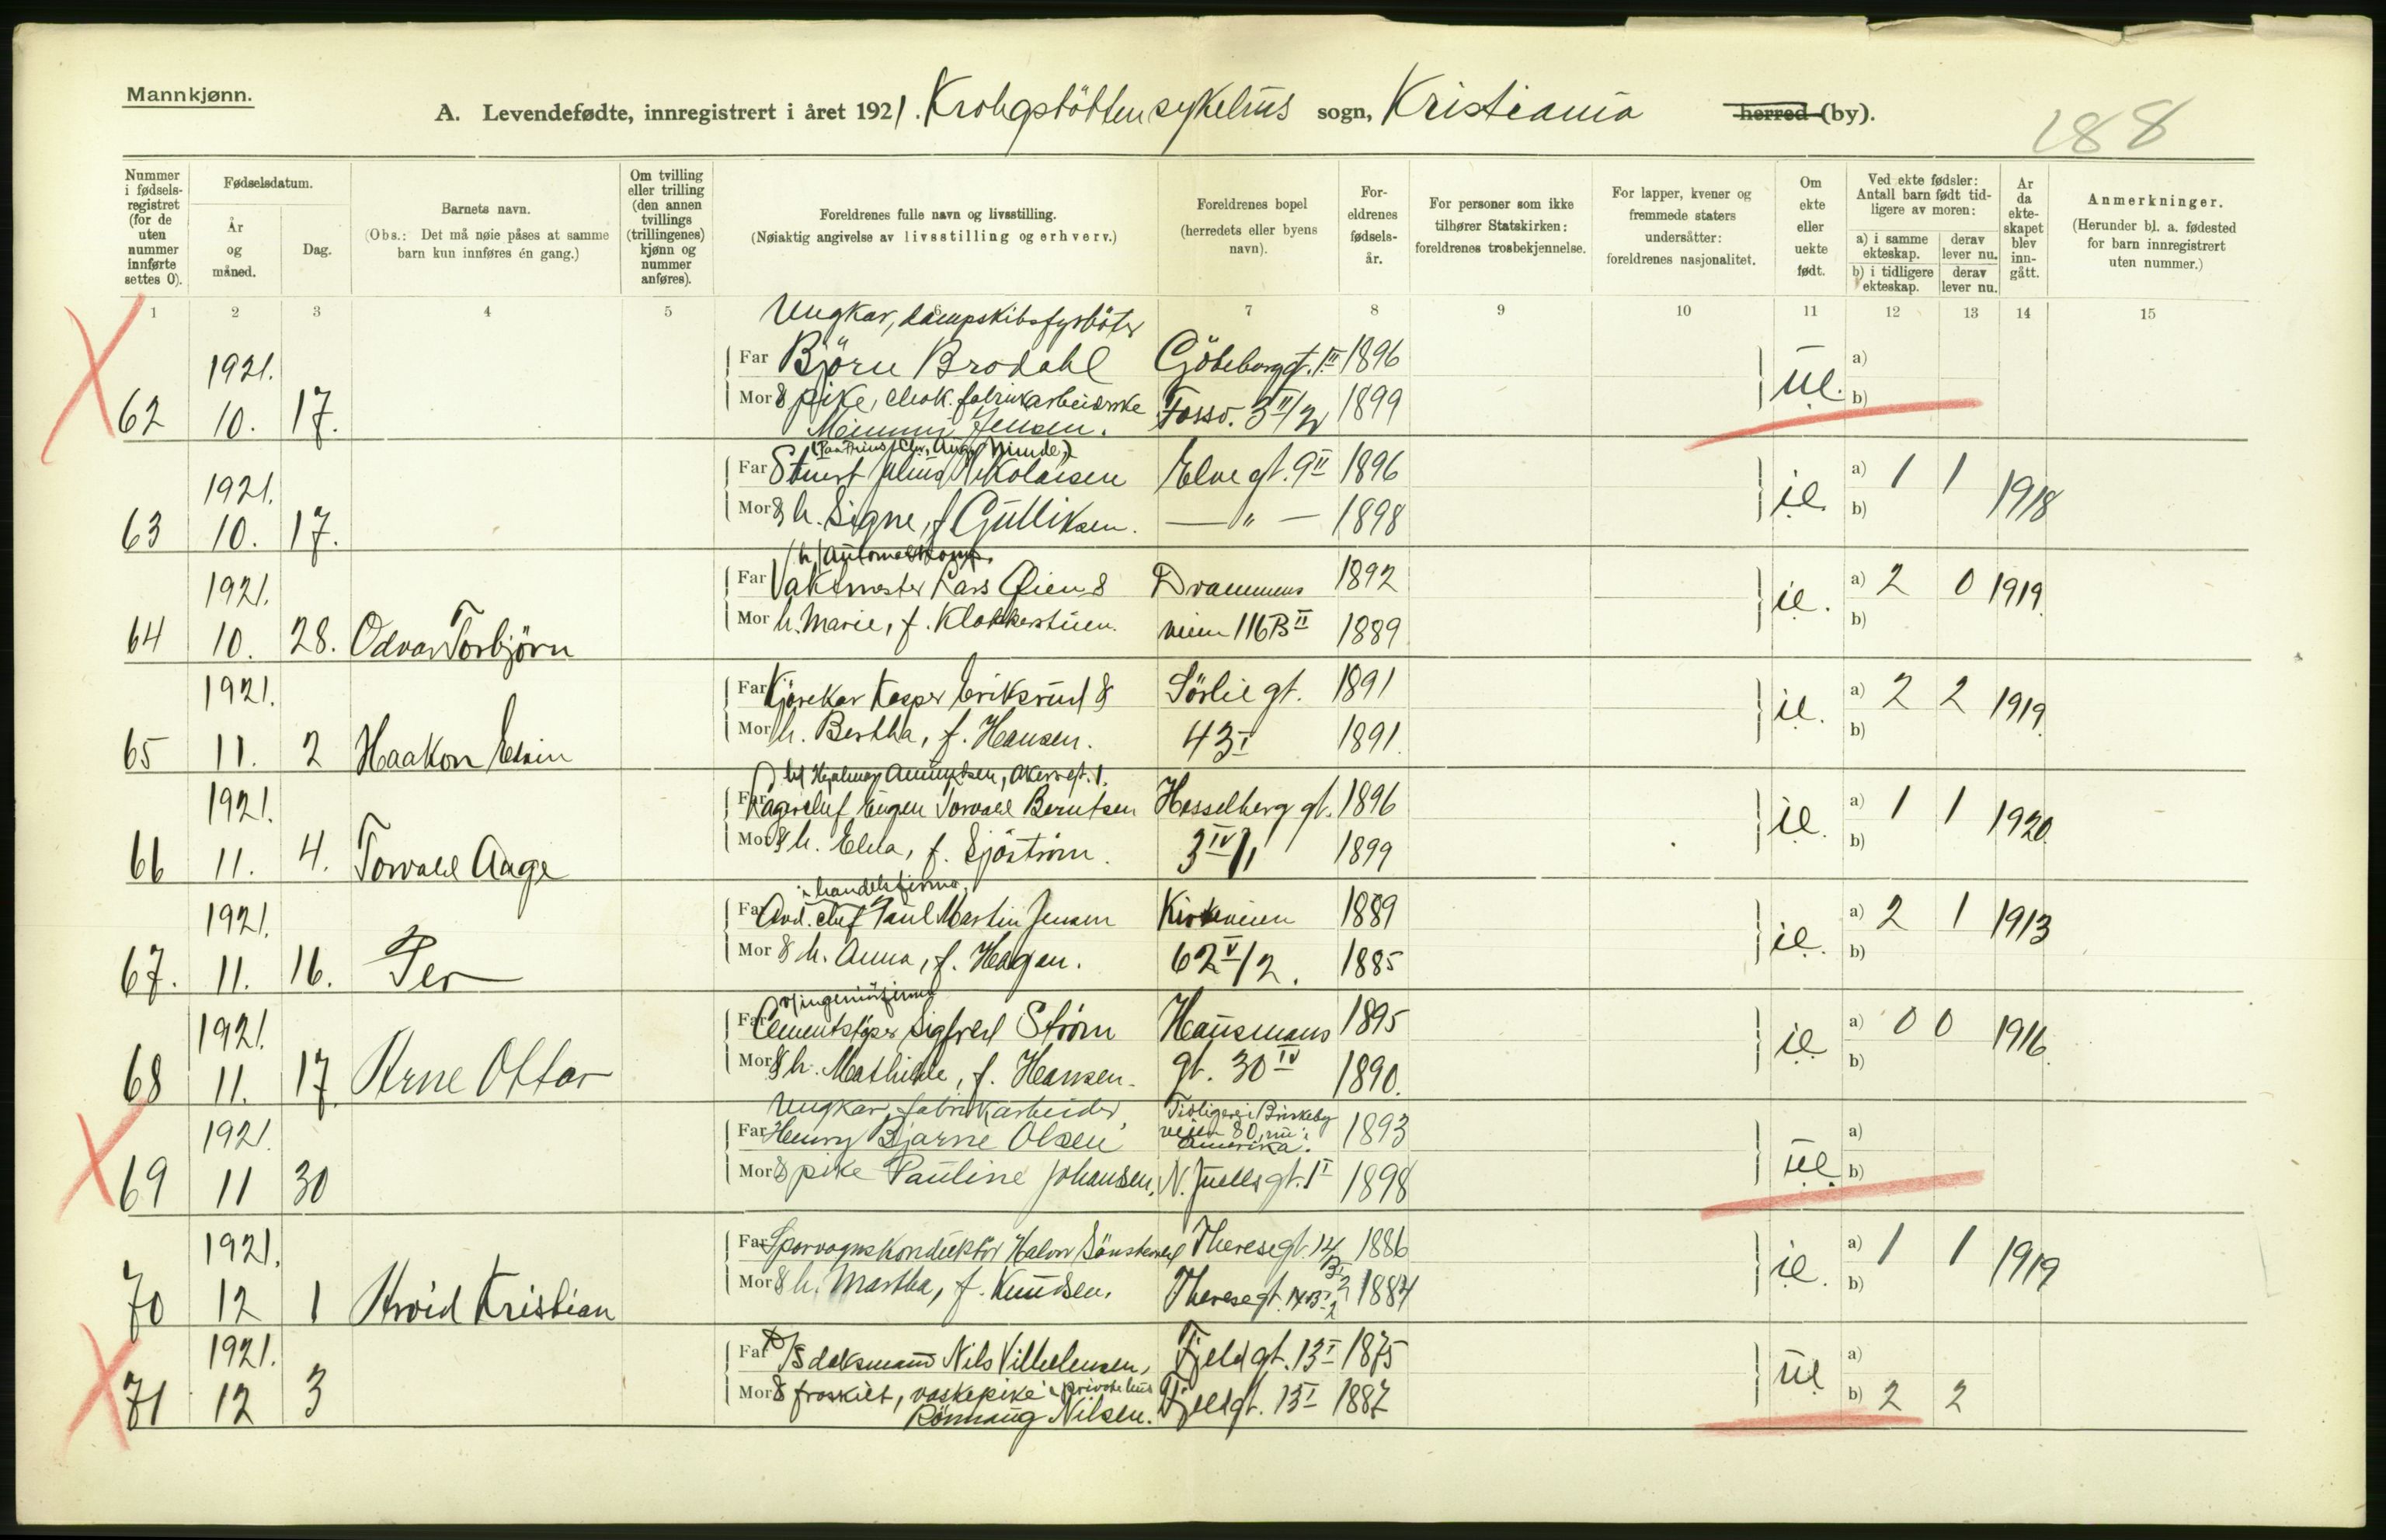 Mannkjønn.
A. Levendefødte, innregistrert i året 1921. Krohgstötten sykehus sogn, Kristiania herred (by).
188
Nummer i fødsels-registret (for de uten nummer innførte settes 0).
Fødselsdatum.
År og måned.
Dag.
Barnets navn.
(Obs.: Det må nøie påses at samme barn kun innføres én gang.)
Om tvilling eller trilling (den annen tvillings (trillingenes) kjønn og nummer anføres).
Foreldrenes fulle navn og livsstilling.
(Nøiaktig angivelse av livsstilling og erhverv.)
Foreldrenes bopel (herredets eller byens navn).
For-eldrenes fødsels-år.
For personer som ikke tilhører Statskirken: foreldrenes trosbekjennelse.
For lapper, kvener og fremmede staters undersåtter: foreldrenes nasjonalitet.
Om ekte eller uekte født.
Ved ekte fødsler: Antall barn født tid-ligere av moren:
a) i samme ekteskap.
derav lever nu.
b) i tidligere ekteskap.
derav lever nu.
År da ekte-skapet blev inn-gått.
Anmerkninger.
(Herunder bl. a. fødested for barn innregistrert uten nummer.)
1 2 3 4 5 7 8 9 10 11 12 13 14 15
Ungkar, dampskibsfyrböter
1921. Far Björn Brodahl Göteborggt. 1 III 1896 a)
62 10. 17. Mor & pike, chok. fabrikarbeiderske Fossv. 3 II/2 1899 ue. b)
Jensen.
1921. Far Nikolaisen Elvegt. 9 II 1896 a) 1 1
63 10. 17. Mor & h. Signe, f. Gulliksen. — " — 1898 ie. b) 1918
1921. Far Vaktmester Lars Øien & Drammens 1892 a) 2 0 1919.
64 10. 28. Odvar Torbjörn Mor h. Marie, f. Klokkerstuen. veien 116 B II 1889 ie. b)
1921. Far Kjörekar Kasper Eriksrud & Sörliegt. 1891 a) 2 2 1919.
65 11. 2 Haakon Edvin Mor h. Bertha, f. Hansen. 43 I 1891. ie. b)
hf Hjalmar Amundsen, Akersgt. 1.
1921. Far Lagerchef Eugen Torvald Berntsen Hesselberg gt. 1896 a) 1 1 1920.
66 11. 4. Torvald Aage Mor & h. Elda, f. Sjöström. 3 IV/1 1899 ie. b)
i handelsfirma,
1921. Far Avd. chef Paul Martin Jensen Kirkeveien 1889 a) 2 1 1913
67. 11. 16. Per Mor & h. Anna, f. Hagen. 62 V/2. 1885 ie. b)
v/ingeniörfirma
1921. Far Cementstöper Sigfred Ström Hausmans 1895 a) 0 0 1916.
68 11. 17. Arne Ottar Mor & h. Mathilde, f. Hansen. gt. 30 IV 1890. ie b)
Ungkar, fabrikarbeider Tidligere i Briskeby
1921. Far Henry Bjarne Olsen veien 80, nu i Amerika. 1893 a)
69 11 30 Mor & pike Pauline Johansen, N. Juels gt. 1 I 1898 ue. b)
1921. Far Sporvognskonduktör Halvor Theresegt. 14 1886 a) 1 1 1919
70 12 1 Arvid Kristian Mor & h. Martha, f. Knudsen. Theresegt. 14 B I 2 1884 ie. b)
1921. Far Nils Vilhelmsen, Fjeldgt. 13 I 1875 a)
71 12 3 Mor & fraskilt, vaskepike i privathus Fjeldgt. 13 I 1887 ue b) 2 2
Rönnaug Nilsen.